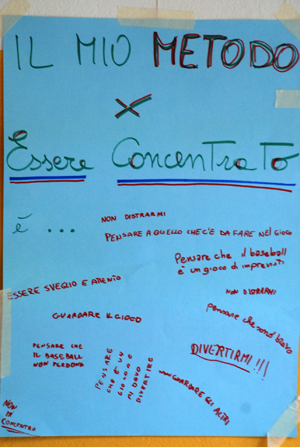 IL MIO METODO
X
Essere Concentrato
è ...
NON DISTRARMI
PENSARE A QUELLO CHE C'È DA FARE NEL GIOCO
Pensare che il baseball
è un gioco di imprevisti
ESSERE SVEGLIO E ATTENTO
NON DISTRARMI
GUARDARE IL GIOCO
Pensare che sono bravo
PENSARE CHE
IL BASEBALL
NON PERDONA
PENSARE
CHE È UN
GIOCO E
MI DEVO
DIVERTIRE
DIVERTIRMI!!!
NON GUARDARE GLI ALTRI
NON MI
CONCENTRO